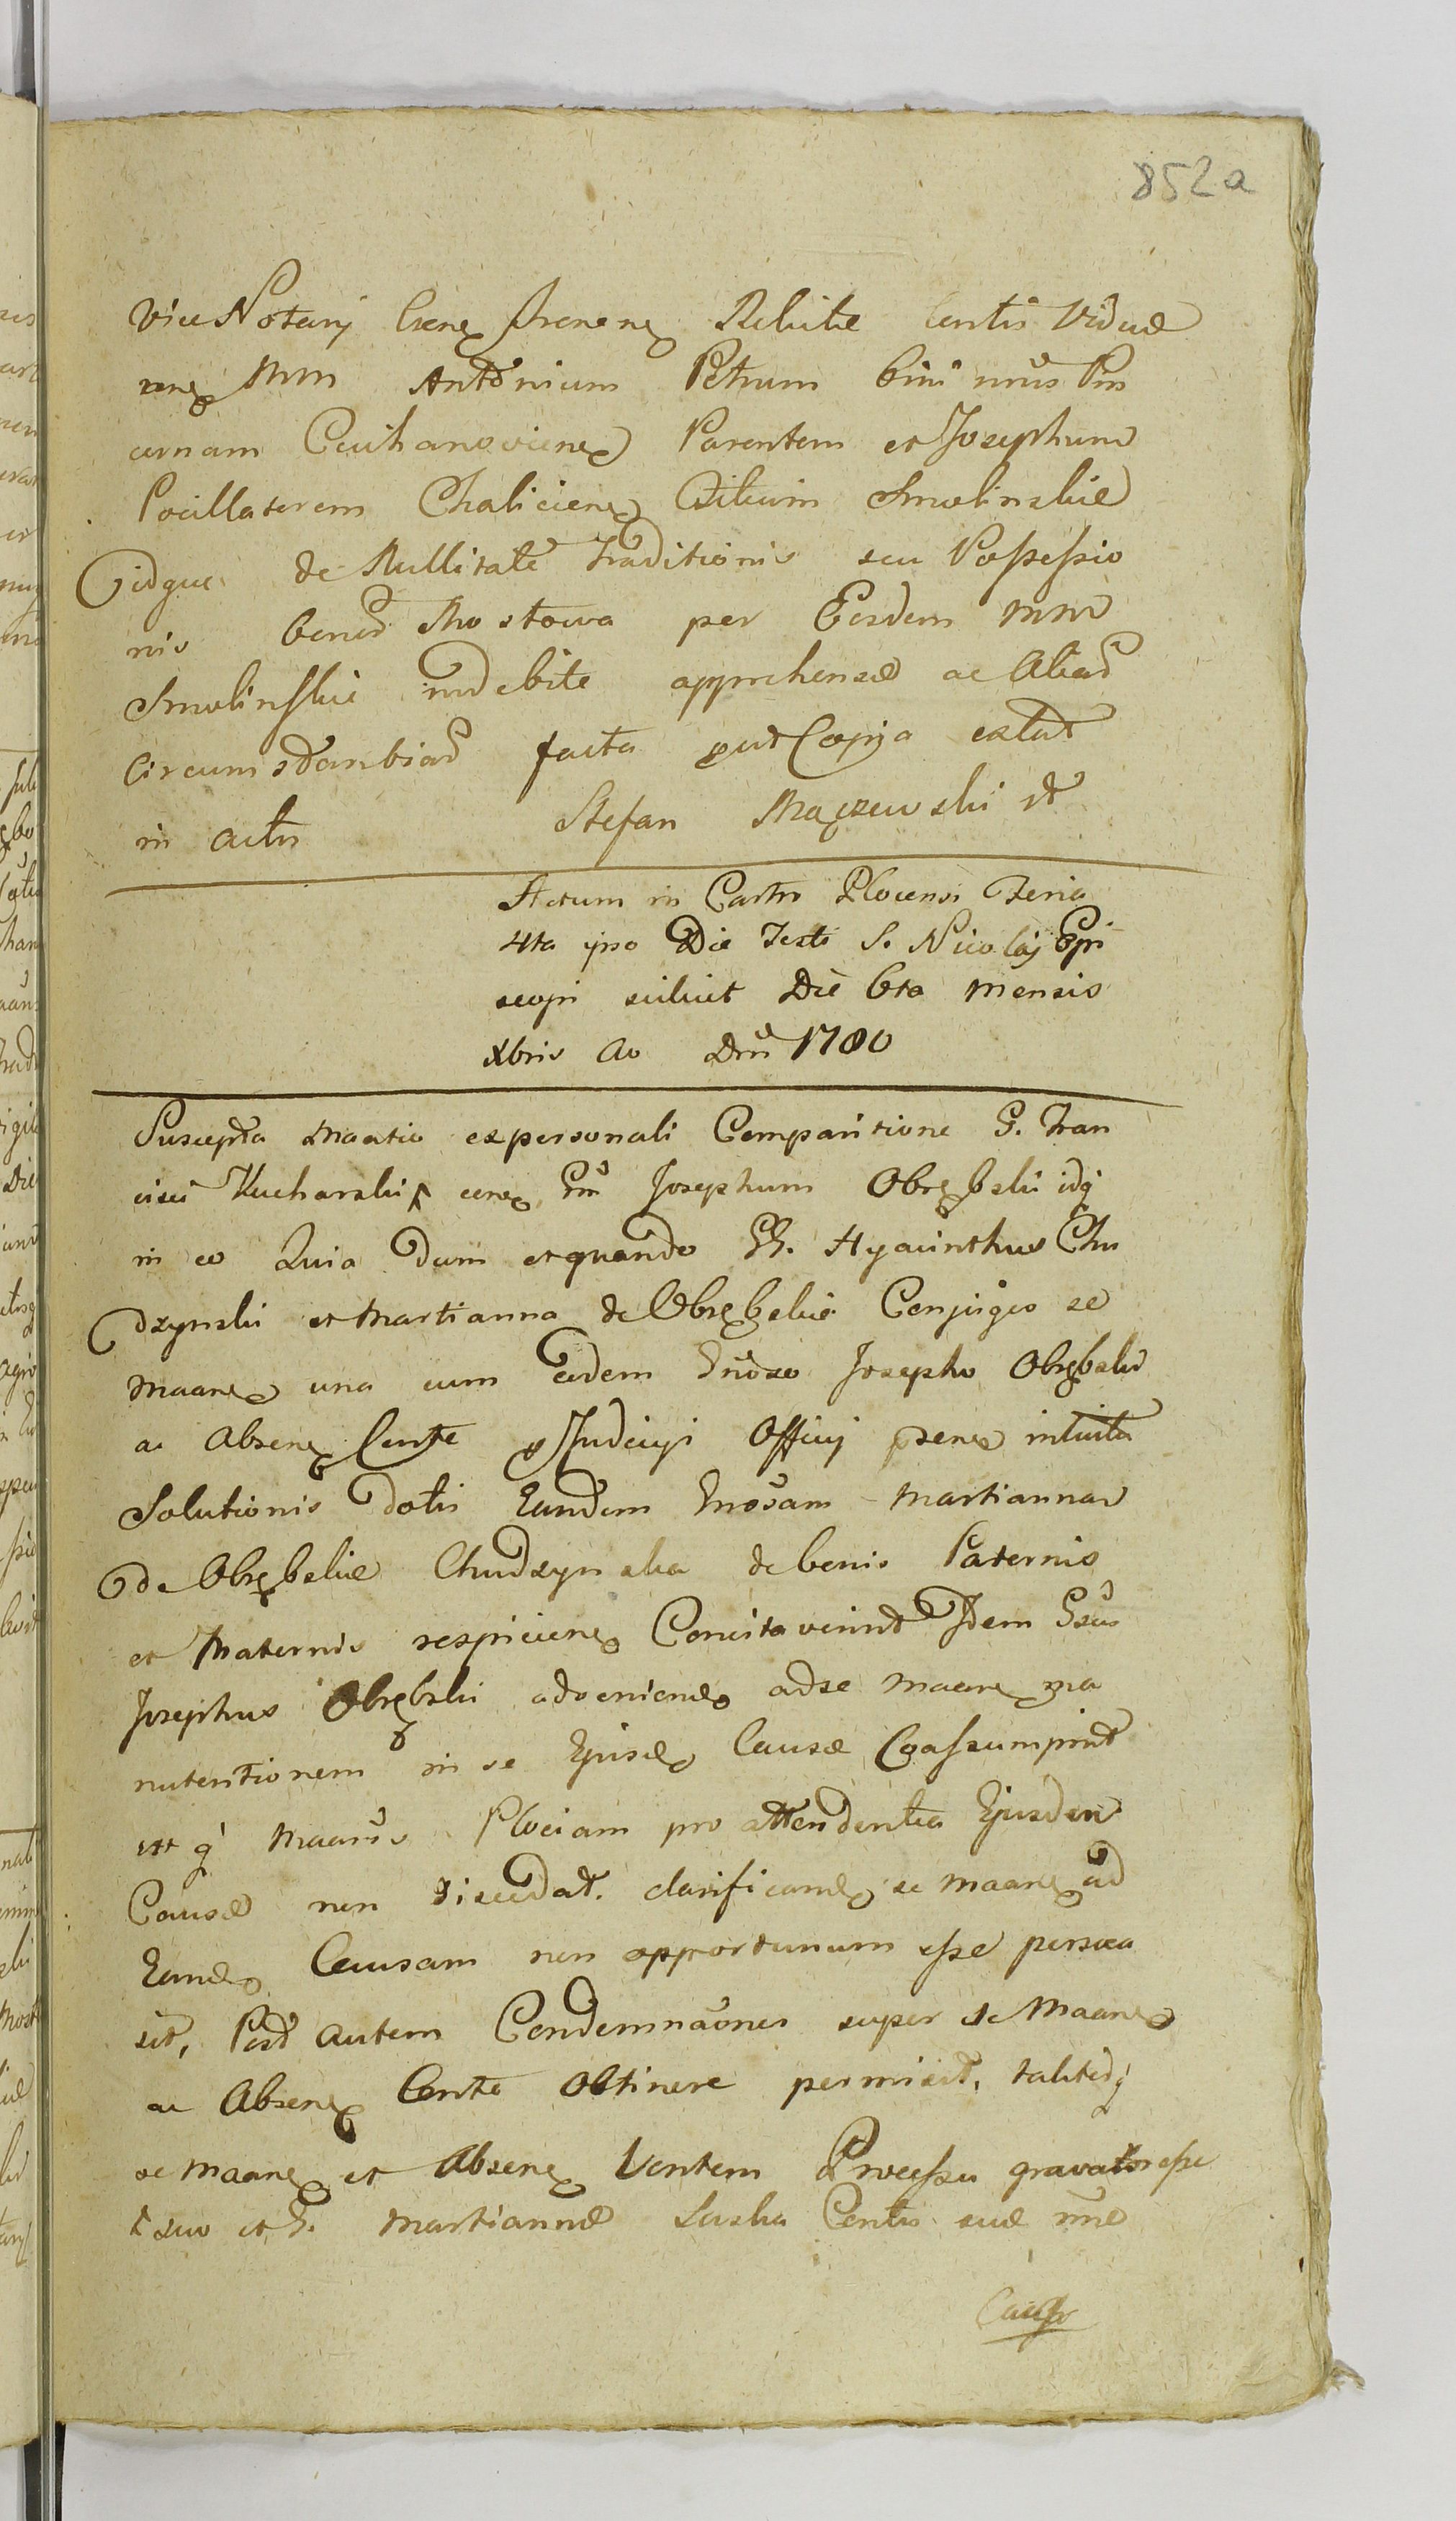 852a
Vice Notarij Relictæ Contis Viduæ
MM Antonium Petrum Pin
cernam Ciechanoviens Parentem et Josephum
Pocillatorem Chaliciens Filium Smolinskie
idque de Nullitate Traditionis seu Possessio
nis bonor Mostowa per Eosdem MM
Smolinskie indebite apprehensæ ac Aliar
Circumstantiar facta put Copia extat
in actis Stefan
Actum in Castro Plocensi Feria
4ta ipso Die Festi S. Nicolaj Epi
scopi scilicet Die 6ta Mensis
Xbris Ao Dni 1780
Suscepta Maatio ex personali Comparitione G. Fran
cisci Kucharski Josephum Obrębski idq
in eo Quia dum et quando GG. Hyacinthus Chu
dzynski et Martianna de Obrębskie Conjuges se
Maane una cum eodem Gnoso Josepho Obrębski
ac Absene Conte Judicij Officij psens intuitu
Solutionis dotis Eandem Gnosam Martiannam
de Obrębskie Chudzynska de bonis Paternis
et Maternis respiciens Concitaverint Idem Gsus
Josephus Obrębski adveniens ad se Maane ma
nutentionem in se Ejusd Causæ Coassumpsit
et q Maans Plociam pro attendentia Ejusdem
Causæ non discedat. clarificando se Maane ad
Eand Causam non opportunum esse persva
sit, Post autem Condemnaones super se Maane
ac Absene Conte obtinere permisit, taliterq
se Maane et Absene Contem Processu gravator esse
suo et G. Martiannæ Contis suæ nne
Causæ